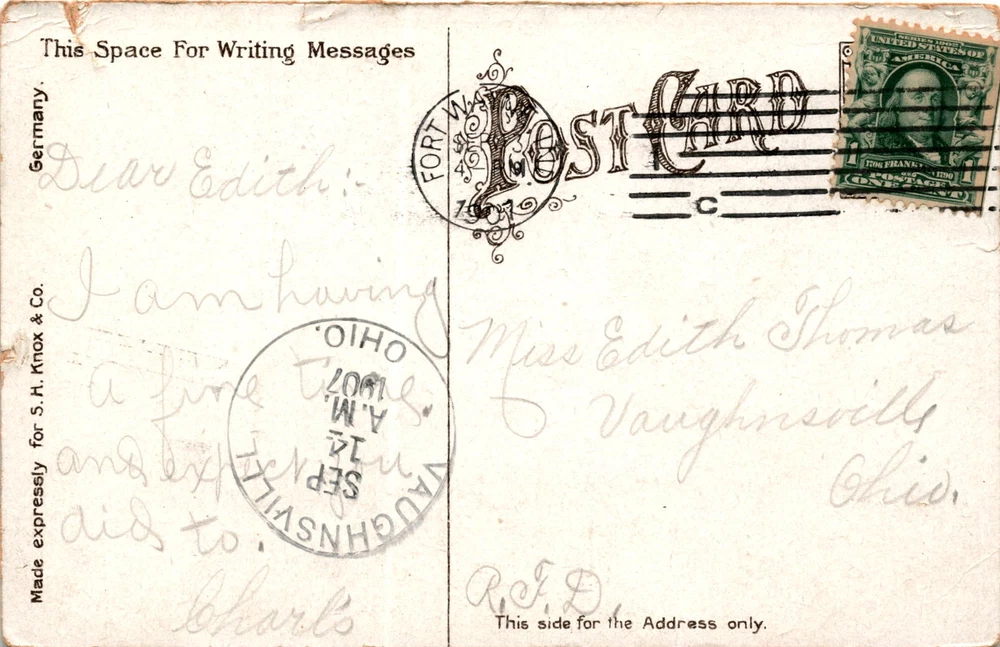 This Space For Writing Messages
Germany.
Made expressly for S. H. Knox & Co.
Dear Edith:-
I am having
a fine time
and expect you
did to.
Charl's
POST CARD
FORT WA
1907
C
SERIES 1902
UNITED STATES OF
AMERICA
1706 FRANKLIN 1790
POSTAGE
1 1
ONE
VAUGHNSVILLE
OHIO.
SEP
14
A.M.
1907
Miss Edith Thomas
Vaughnsville
Ohio.
R.F.D.
This side for the Address only.